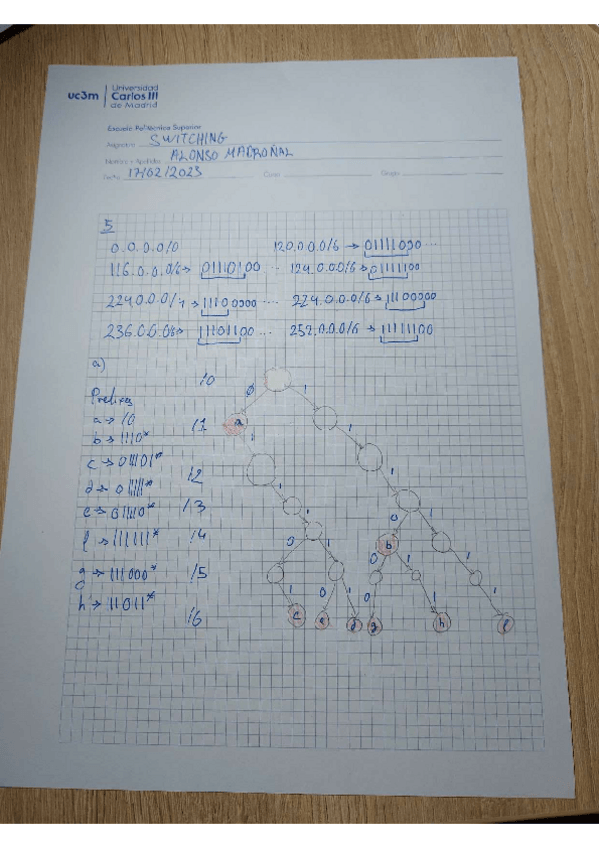 uc3m Universidad
Carlos III
de Madrid
Escuela Politécnica Superior
Asignatura SWITCHING
Nombre y Apellidos ALONSO MADROÑAL
Fecha 17/02/2023 Curso Grupo
5
0.0.0.0/0 120.0.0.0/6 → 01111000 ...
116.0.0.0/6 → 01110100 ... 124.0.0.0/6 → 01111100
224.0.0.0/4 → 11100000 ... 224.0.0.0/6 → 11100000
236.0.0.0 → 11101100 ... 252.0.0.0/6 → 11111100
a)
/0
0 1
Prefixes
a → /0
/1
a
b → 1110*
1 1
c → 011101*
/2
d → 011111*
1 1
e → 011110*
/3
1 0 1
f → 111111*
/4
0 1 b
0 1 1
g → 111000*
/5
1 0 1 0 1 1
h → 11011*
/6
c e d g h f